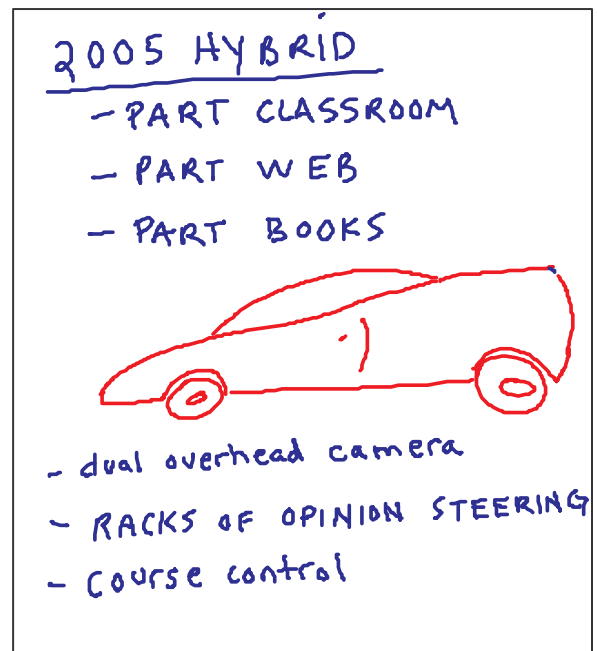 2005 HYBRID
- PART CLASSROOM
- PART WEB
- PART BOOKS
- dual overhead camera
- RACKS OF OPINION STEERING
- Course control